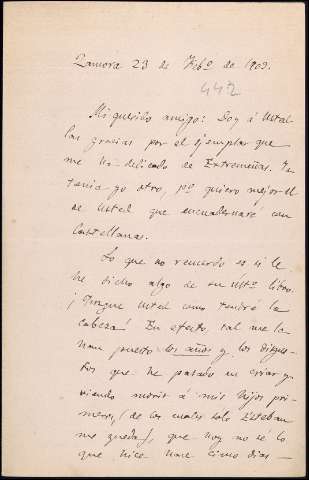 Zamora 23 de Febº de 1903.
442
Mi querido amigo: Doy á Usted
las gracias por el ejemplar que
me ha dedicado de Extremeñas. Ya
tenia yo otro, pº quiero mejor el
de Usted que encuadernaré con
Castellanas.
Lo que no recuerdo es si le
he dicho algo de su últº libro.
¡Juzgue Usted como tendré la
cabeza! En efecto, tal me la
han puesto los años y los disgus-
tos que he pasado en criar y
viendo morir á mis hijos pri-
meros, (de los cuales solo Esteban
me queda), que hoy no se lo
que hice hace cinco dias—